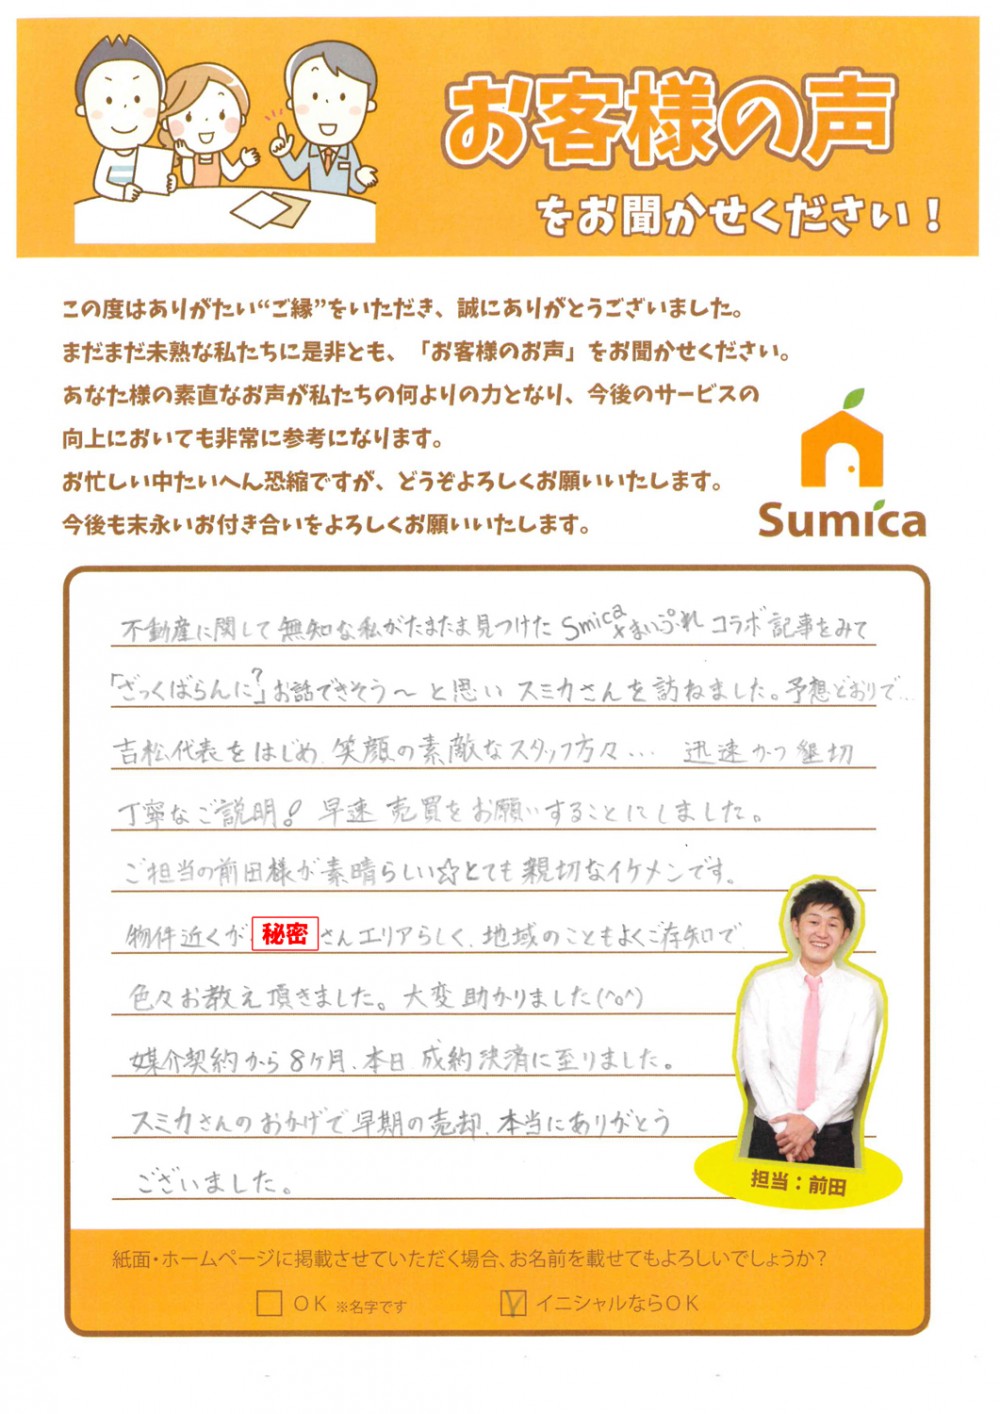 お客様の声
をお聞かせください！
この度はありがたい“ご縁”をいただき、誠にありがとうございました。
まだまだ未熟な私たちに是非とも、「お客様のお声」をお聞かせください。
あなた様の素直なお声が私たちの何よりの力となり、今後のサービスの
向上においても非常に参考になります。
お忙しい中たいへん恐縮ですが、どうぞよろしくお願いいたします。
今後も末永いお付き合いをよろしくお願いいたします。
Sumica
不動産に関して無知な私がたまたま見つけた Smica+まいぷれ コラボ記事をみて
「ざっくばらんに?」お話できそう〜と思い スミカさんを訪ねました。予想どおりで…
吉松代表をはじめ、笑顔の素敵なスタッフ方々… 迅速かつ懇切
丁寧なご説明! 早速 売買をお願いすることにしました。
ご担当の前田様が素晴らしい☆とても親切なイケメンです。
物件近くが 秘密 さんエリアらしく、地域のこともよくご存知で
色々お教え頂きました。大変助かりました(^o^)
媒介契約から8ヶ月、本日 成約決済に至りました。
スミカさんのおかげで早期の売却、本当にありがとう
ございました。
担当：前田
紙面・ホームページに掲載させていただく場合、お名前を載せてもよろしいでしょうか？
□ OK ※名字です ☑ イニシャルならOK